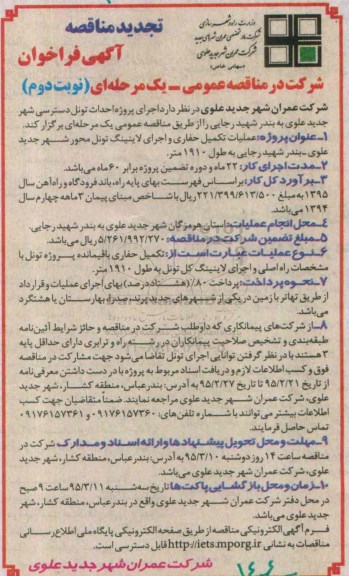 وزارت راه و شهرسازی
شرکت مادر تخصصی عمران شهرهای جدید
شرکت عمران شهر جدید علوی
(سهامی خاص)
تجدید مناقصه
آگهی فراخوان
شرکت در مناقصه عمومی ـ یک مرحله‌ای (نوبت دوم)
شرکت عمران شهر جدید علوی در نظر دارد اجرای پروژه احداث تونل دسترسی شهر
جدید علوی به بندر شهید رجایی را از طریق مناقصه عمومی یک مرحله‌ای برگزار کند.
۱ـ عنوان پروژه: عملیات تکمیل حفاری و اجرای لاینینگ تونل محور شهر جدید
علوی ـ بندر شهید رجایی به طول ۱۹۱۰ متر.
۲ـ مدت اجرای کار: ۲۲ ماه و دوره تضمین پروژه برابر ۶۰ ماه می‌باشد.
۳ـ برآورد کل کار: براساس فهرست بهای پایه راه، باند فرودگاه و راه‌آهن سال
۱۳۹۵ به مبلغ ۲۲۱/۳۹۹/۶۱۳/۵۰۰ ریال با شاخص مبنای پیمان ۳ ماهه چهارم سال
۱۳۹۴ می‌باشد.
۴ـ محل انجام عملیات: استان هرمزگان شهر جدید علوی به بندر شهید رجایی.
۵ـ مبلغ تضمین شرکت در مناقصه: ۵/۲۶۱/۹۹۲/۲۷۰ ریال می‌باشد.
۶ـ نوع عملیات عبارت است از: تکمیل حفاری باقیمانده پروژه تونل با
مشخصات راه اصلی و اجرای لاینینگ کل تونل به طول ۱۹۱۰ متر.
۷ـ نحوه پرداخت: پرداخت ۸۰٪ (هشتاد درصد) بهای اجرای عملیات و قرارداد
از طریق تهاتر با زمین در یکی از شهرهای جدید پرند، صدرا، بهارستان یا هشتگرد
می‌باشد.
۸ـ از شرکت‌های پیمانکاری که داوطلب شرکت در مناقصه و حائز شرایط آئین‌نامه
طبقه‌بندی و تشخیص صلاحیت پیمانکاران در رشته راه و ترابری دارای حداقل پایه
۳ هستند با در نظر گرفتن توانایی اجرای تونل تقاضا می‌شود جهت مشارکت در مناقصه
فوق و کسب اطلاعات لازم و دریافت اسناد مربوط به پروژه با در دست داشتن معرفی‌نامه
از تاریخ ۹۵/۲/۲۱ تا تاریخ ۹۵/۲/۲۷ به آدرس: بندرعباس، منطقه کشار، شهر جدید
علوی، شرکت عمران شهر جدید علوی مراجعه نمایند. ضمناً متقاضیان جهت کسب
اطلاعات بیشتر می‌توانند با شماره تلفن‌های: ۰۹۱۷۶۱۵۷۳۶۰ و ۰۹۱۷۶۱۵۷۳۶۱
تماس حاصل فرمایند.
۹ـ مهلت و محل تحویل پیشنهادها و ارائه اسناد و مدارک شرکت در
مناقصه ساعت ۱۴ روز دوشنبه ۹۵/۳/۱۰ به آدرس: بندرعباس، منطقه کشار، شهر جدید
علوی، شرکت عمران شهر جدید علوی می‌باشد.
۱۰ـ زمان و محل بازگشایی پاکت‌ها تاریخ سه‌شنبه ۹۵/۳/۱۱ ساعت ۹ صبح
در محل دفتر شرکت عمران شهر جدید علوی واقع در بندرعباس، منطقه کشار، شهر
جدید علوی می‌باشد.
فرم آگهی الکترونیکی مناقصه از طریق صفحه الکترونیکی پایگاه ملی اطلاع‌رسانی
مناقصات به نشانی http://iets.mporg.ir قابل دسترسی است.
شرکت عمران شهر جدید علوی